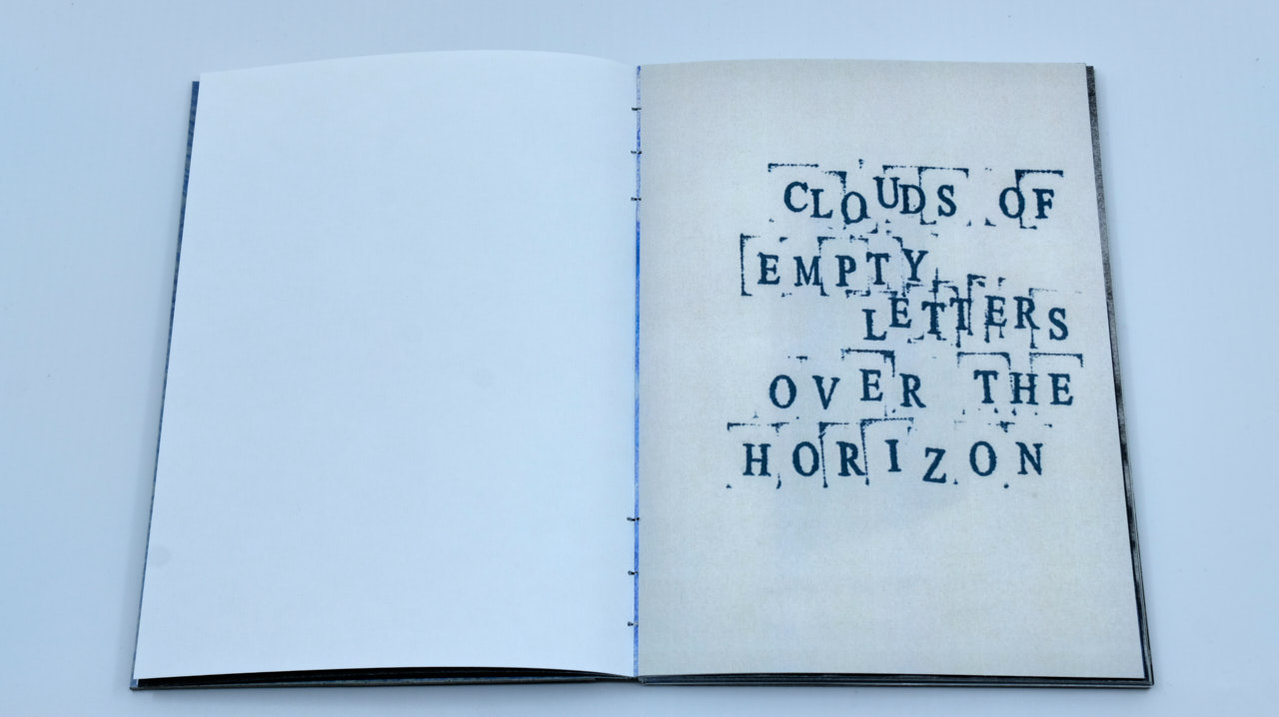 CLOUDS OF
EMPTY
LETTERS
OVER THE
HORIZON